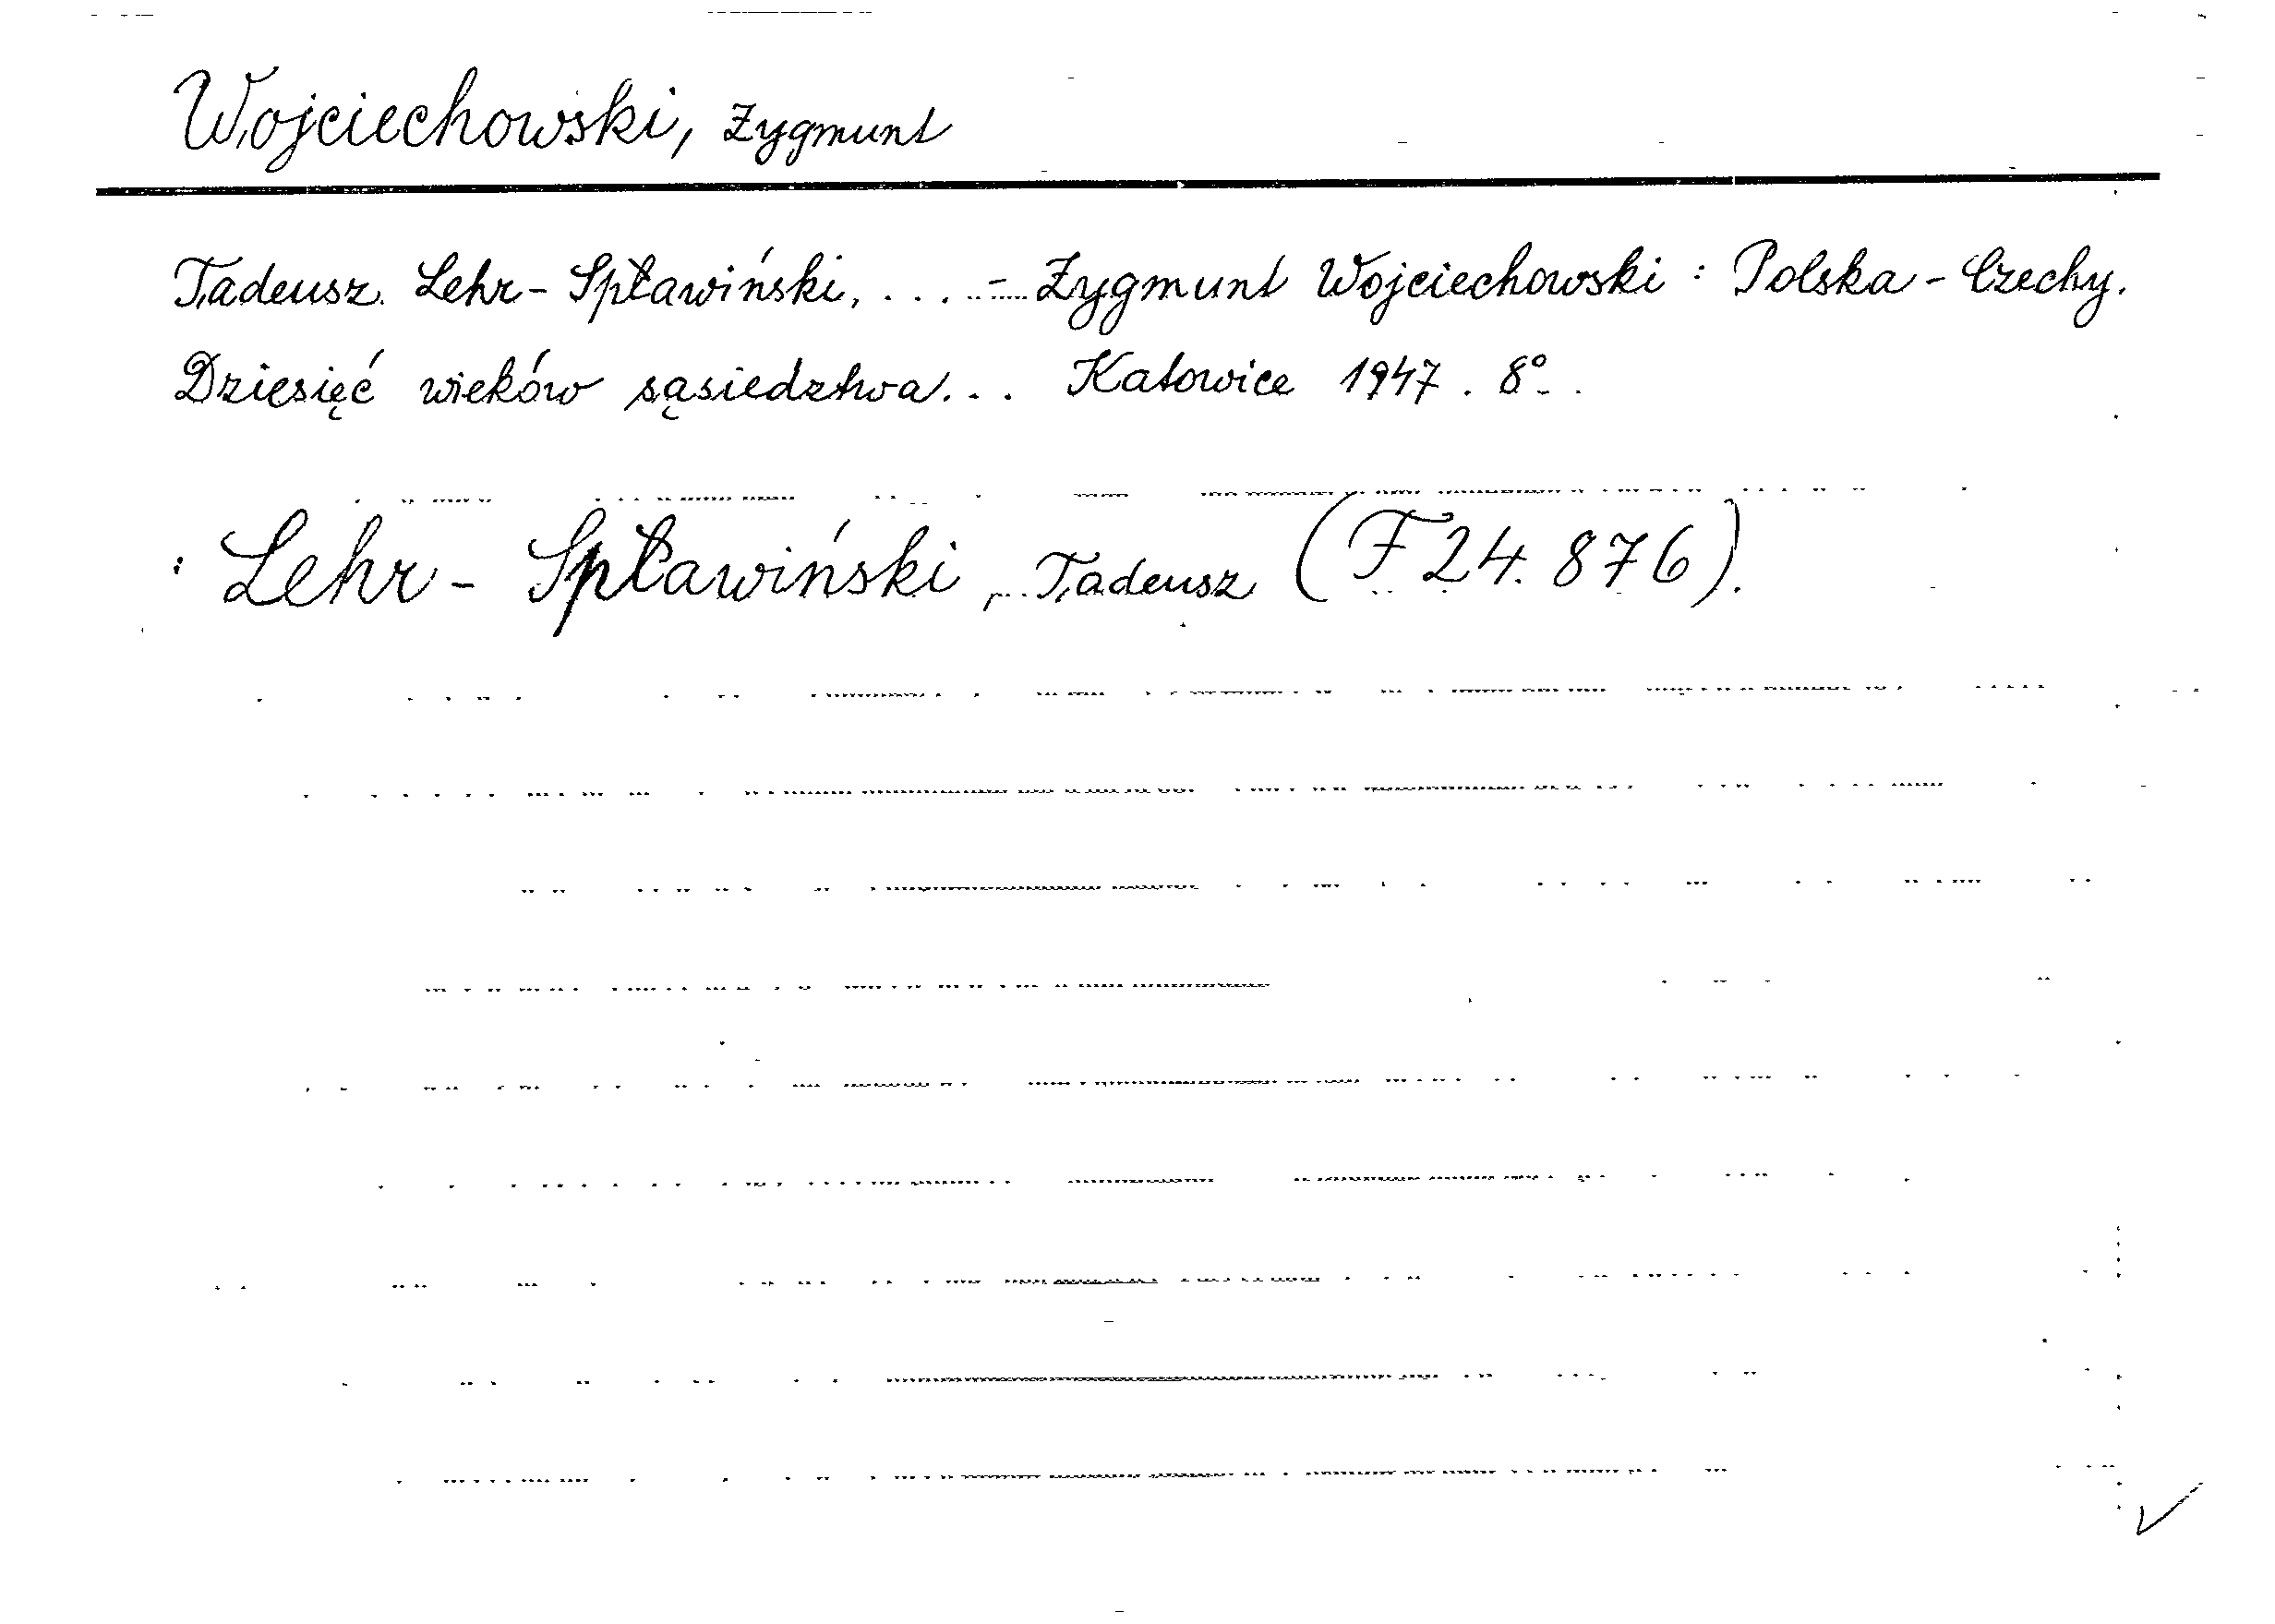 Wojciechowski, Zygmunt
Tadeusz Lehr-Spławiński, ... - Zygmunt Wojciechowski : Polska - Czechy.
Dziesięć wieków sąsiedztwa... Katowice 1947. 8°.
: Lehr-Spławiński, Tadeusz (F 24.876).